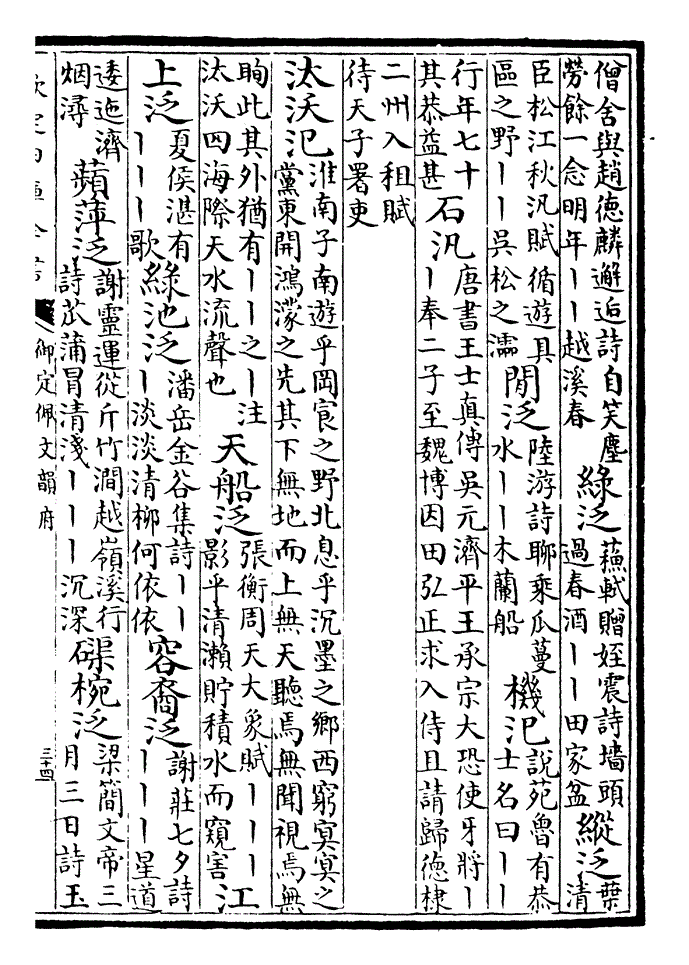 僧舍與趙德麟邂逅詩自笑塵
勞餘一念明年丨丨越溪春
緑泛
蘓軾贈姪震詩墻頭
過春酒丨丨田家盆
縱泛
葉
清
臣松江秋汎賦循遊具
區之野丨丨吳松之濡
閒泛
陸游詩聊乘瓜蔓
水丨丨木蘭船
機汜
說苑魯有恭
士名曰丨丨
行年七十
其恭益甚
石汎
唐書王士真傳吳元濟平王承宗大恐使牙將丨
丨奉二子至魏博因田弘正求入侍且請歸德棣
二州入租賦
待天子署吏
汰沃汜
淮南子南遊乎岡㝗之野北息乎沉墨之鄉西窮冥冥之
黨東開鴻濛之先其下無地而上無天聽焉無聞視焉無
眴此其外猶有丨丨之丨注
汰沃四海際天水流聲也
天船泛
張衡周天大象賦丨丨丨
影乎清瀨貯積水而窺害
江
上泛
夏侯湛有
丨丨丨歌
緑池泛
潘岳金谷集詩丨丨
丨淡淡清柳何依依
容裔泛
謝莊七夕詩
丨丨丨星道
逶迤濟
烟潯
蘋萍泛
謝靈運從斤竹澗越嶺溪行
詩苽蒲冒清淺丨丨丨沉深
磲椀泛
梁簡文帝三
月三日詩玉
欽定四庫全書
御定佩文韻府
三十四